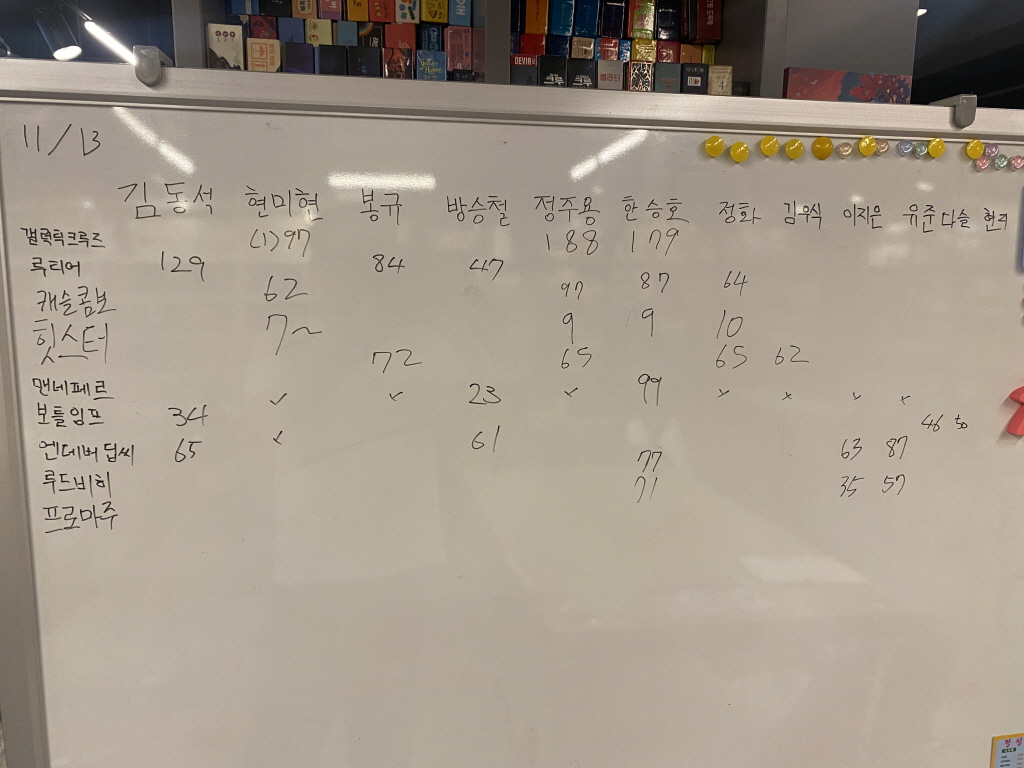 11/13
김동석 현미현 봉규 방승철 정주용 한승호 정화 김우식 이지은 유준 다슬 현규
갤럭틱크루즈 (1)97 188 179
루티어 129 84 47
캐슬콤보 62 97 87 64
힛스터 7~ 9 9 10
72 65 65 62
맨네페르 ✓ ✓ 23 ✓ 99 × × ✓ ×
보틀임프 34 46 50
엔데버딥씨 65 × 61 63 87
루드비히 77 35 57
프로마주 71
DEVIR